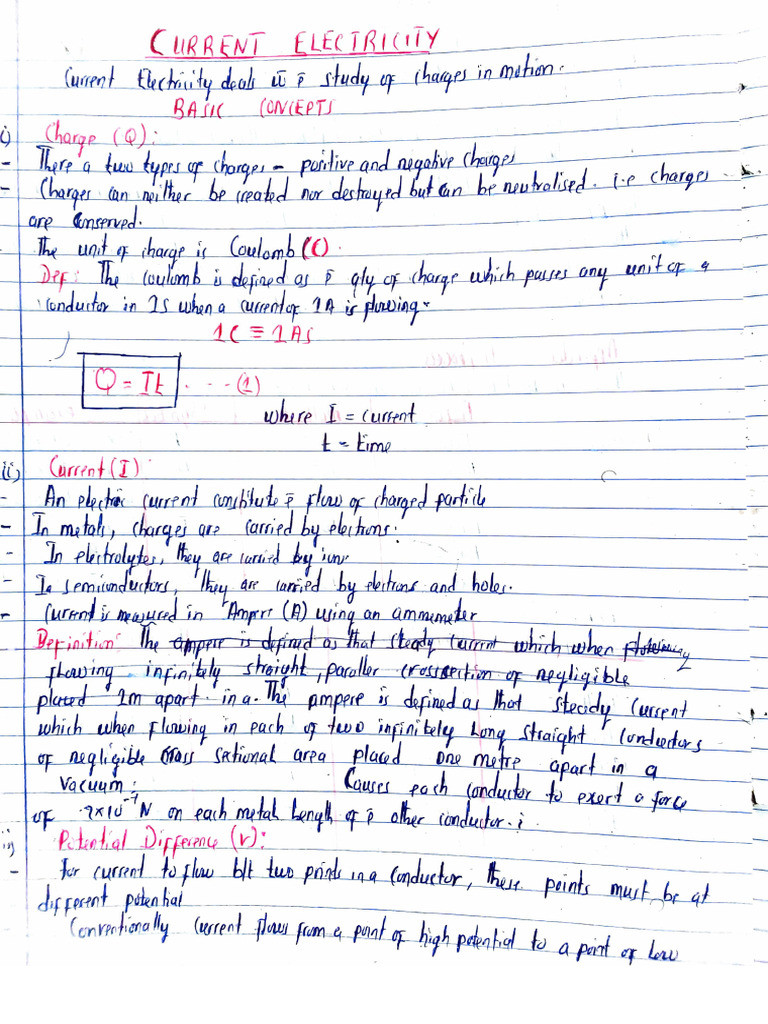 CURRENT ELECTRICITY
Current Electricity deals w̄ p̄ study of charges in motion.
BASIC CONCEPTS
i) Charge (Q):
- There a two types of charges - positive and negative charges
- Charges can neither be created nor destroyed but can be neutralised. i.e charges
are conserved.
The unit of charge is Coulomb (C).
Def: The coulomb is defined as p̄ qly of charge which passes any unit of a
conductor in 1S when a current of 1A is flowing.
1C ≡ 1As
Q = It . - - - (1)
where I = current
t = time
ii) Current (I):
- An electric current constitute p̄ flow of charged particle
- In metals, charges are carried by electrons.
- In electrolytes, they are carried by ions
- In semiconductors, they are carried by electrons and holes.
- Current is measured in Ampere (A) using an ammemeter
Definition: The ampere is defined as that steady current which when
flowing infinitely straight, paraller crossection of negligible
placed 1m apart in a. The ampere is defined as that steady current
which when flowing in each of two infinitely long straight conductors
of negligible cross sectional area placed one metre apart in a
vacuum: Causes each conductor to exert a force
of 2x10⁻⁷N on each metal length of p̄ other conductor.
Potential Difference (V):
- for current to flow b/t two points in a conductor, these points must be at
different potential
Conventionally current flows from a point of high potential to a point of low